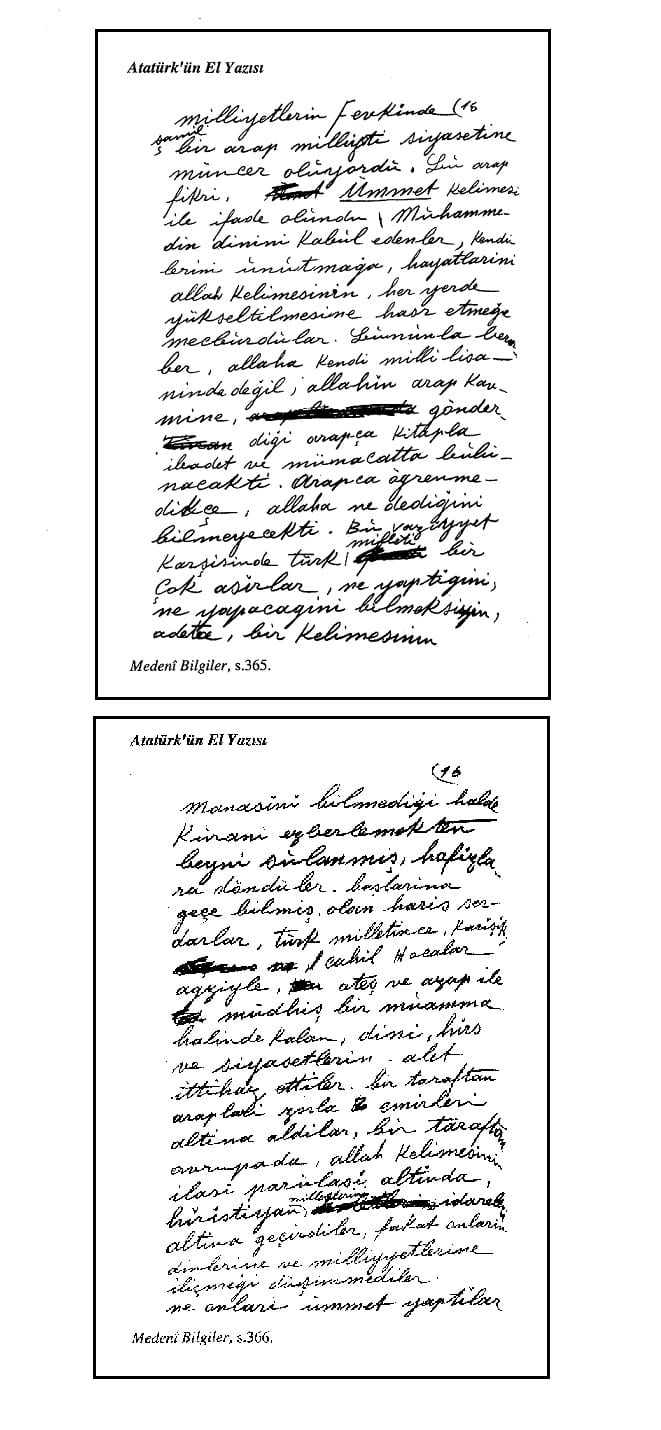 Atatürk'ün El Yazısı
milliyetlerin fevkinde (16
şamil
bir arap milliyeti siyasetine
müncer olüyordü. Bü arap
fikri, Ümmet kelimesi
ile ifade olündü \ Mühamme-
din dinini kabül edenler, kendi
lerini ünütmağa, hayatlarini
allah kelimesinin, her yerde
yükseltilmesine hasr etmeğe
mecbürdülar. Bününla bera
ber, allaha kendi milli lisa-
ninda değil, allahin arap kav-
mine, gönder
diği arapça kitapla
ibadet ve münacatta bülü-
nacakti. Arapca öğrenme-
dikçe, allaha ne dediğini
bilmeyecekti. Bü vaziyyet
milleti
karşisinde türk bir
çok asirlar, ne yaptiğini,
ne yapacagini bilmeksizin,
adeta, bir kelimesinin
Medenî Bilgiler, s.365.
Atatürk'ün El Yazısı
(16
manasini bilmediği halde
Küranı ezberlemekten
beyni sülanmiş, hafizla
ra döndüler. başlarina
geçe bilmiş olan haris ser-
darlar, türk milletince, karişik
cahil hocalar
agziyle, ateş ve azap ile
müdhiş bir müamma
halinde kalan, dini, hirs
ve siyasetlerin alet
ittihaz ettiler. bir taraftan
araplari zorla emirleri
altina aldilar, bir taraftan
avrupada, allah kelimesinin
ilasi parülasi altinda,
milletlerini
hiristiyan idareleri
altina geçirdiler, fakat onlarin
dinlerine ve milliyyetlerine
ilişmeği düşünmediler.
ne onlari ümmet yaptilar
Medenî Bilgiler, s.366.